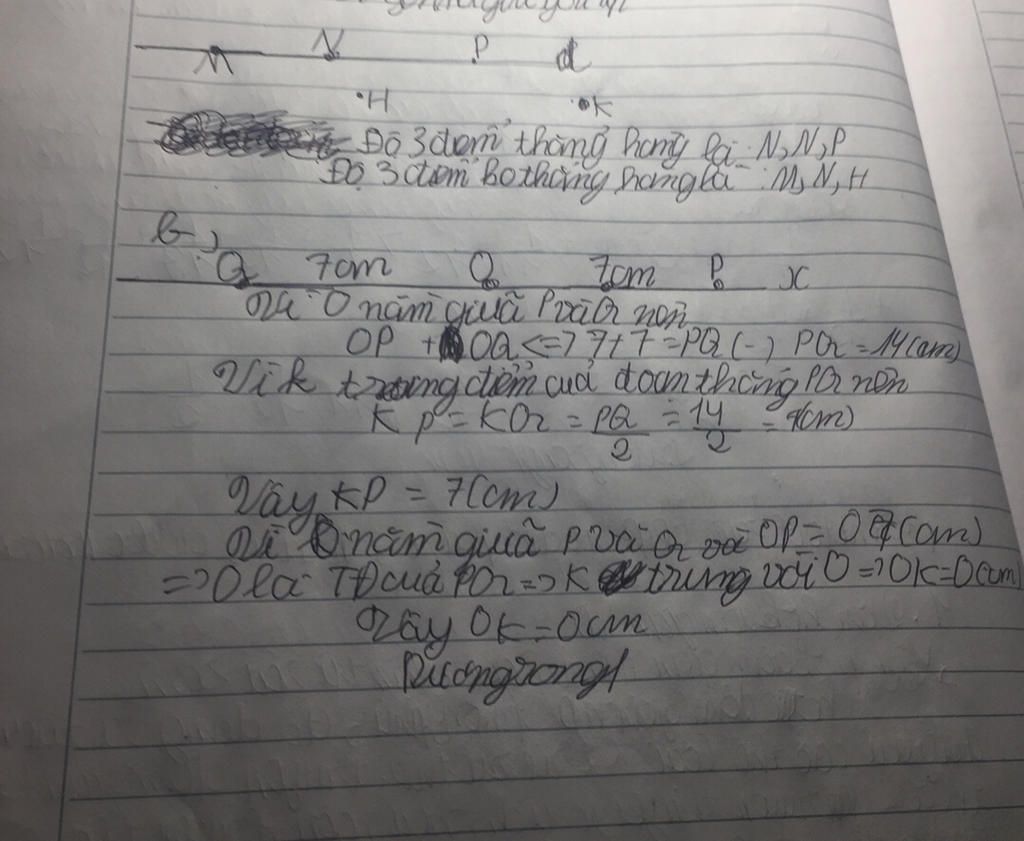 M N P d
H K
Độ 3 điểm thẳng hàng là: N, N, P
Độ 3 điểm ko thẳng hàng là: M, N, H
b,
Q 7cm O 7cm P x
Vì O nằm giữa P và Q nên
OP + OQ <=> 7+7 = PQ (-) PQ = 14(cm)
Vì k trung điểm của đoạn thẳng PQ nên
KP = KQ = PQ/2 = 14/2 = 7(cm)
Vậy KP = 7(cm)
Vì O nằm giữa P và Q và OP = (cm)
=> O là TĐ của PQ => K trùng với O => OK = 0(cm)
Vậy OK = 0cm